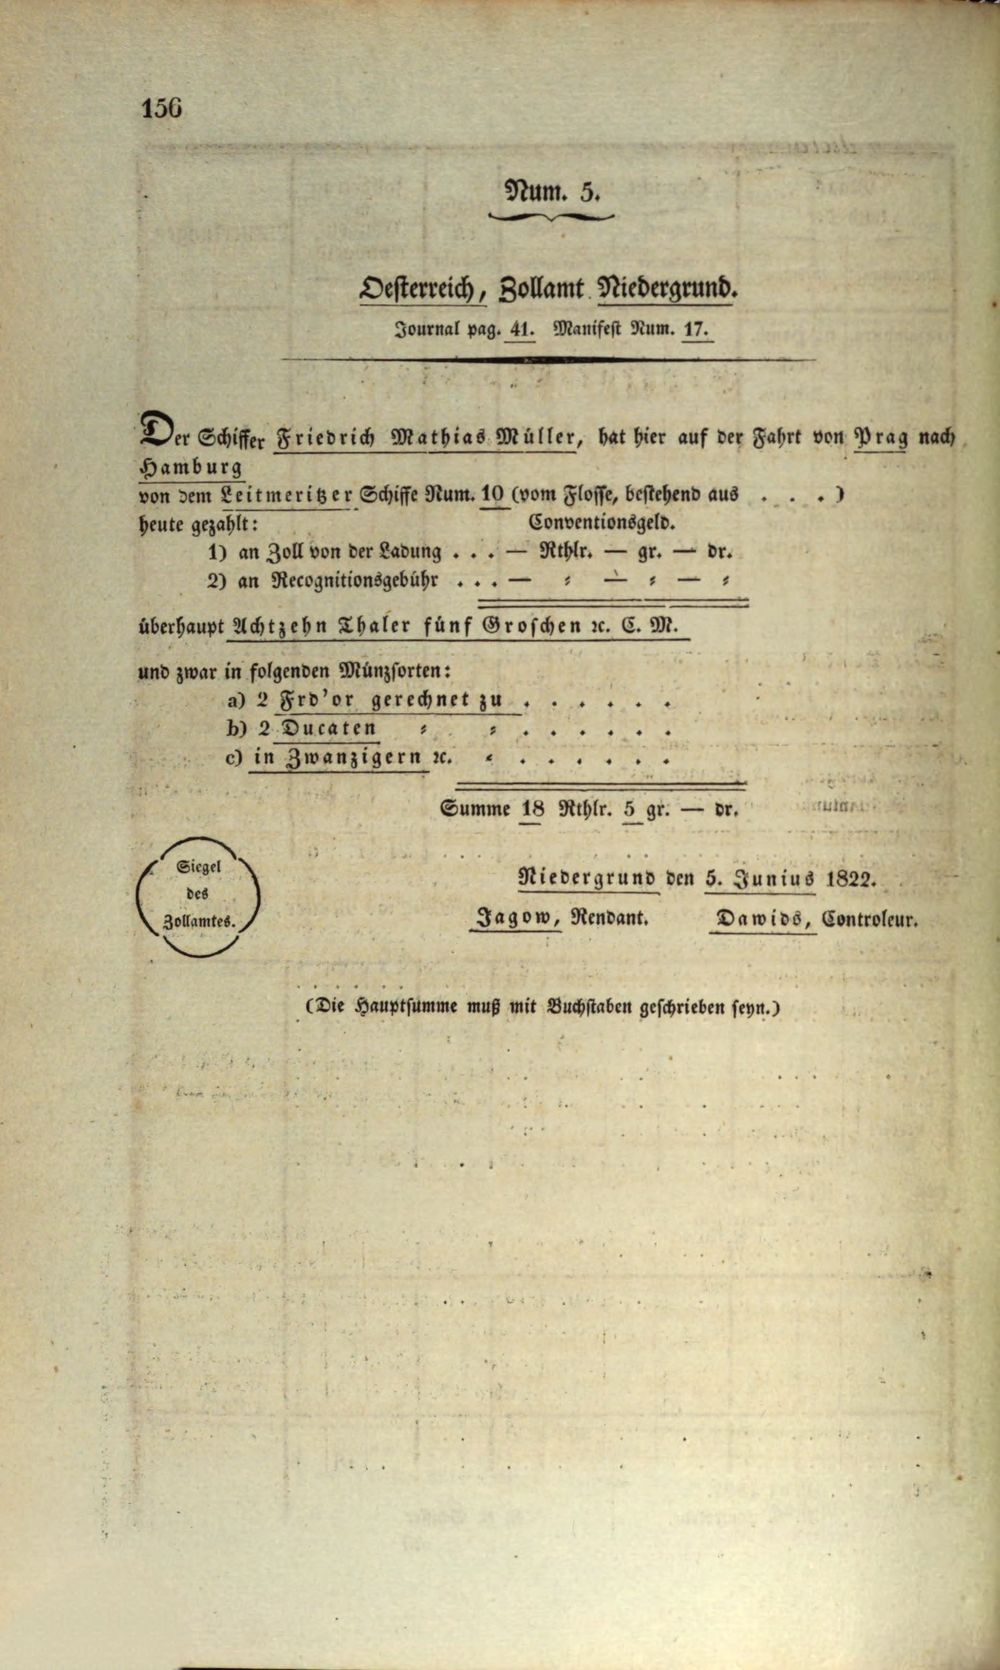 156
Num. 5.
Oesterreich, Zollamt Niedergrund.
Journal pag. 41. Manifest Num. 17.
Der Schiffer Friedrich Mathias Müller, hat hier auf der Fahrt von Prag nach
Hamburg
von dem Leitmeritzer Schiffe Num. 10 (vom Flosse, bestehend aus . . . )
heute gezahlt: Conventionsgeld.
1) an Zoll von der Ladung . . . — Rthlr. — gr. — dr.
2) an Recognitionsgebühr . . . — ⸗ — ⸗ — ⸗
überhaupt Achtzehn Thaler fünf Groschen ꝛc. C. M.
und zwar in folgenden Münzsorten:
a) 2 Frd'or gerechnet zu . . . . . .
b) 2 Ducaten ⸗ ⸗ . . . . . .
c) in Zwanzigern ꝛc. ⸗ . . . . . .
Summe 18 Rthlr. 5 gr. — dr.
Siegel
des
Zollamtes.
Niedergrund den 5. Junius 1822.
Jagow, Rendant. Dawids, Controleur.
(Die Hauptsumme muß mit Buchstaben geschrieben seyn.)